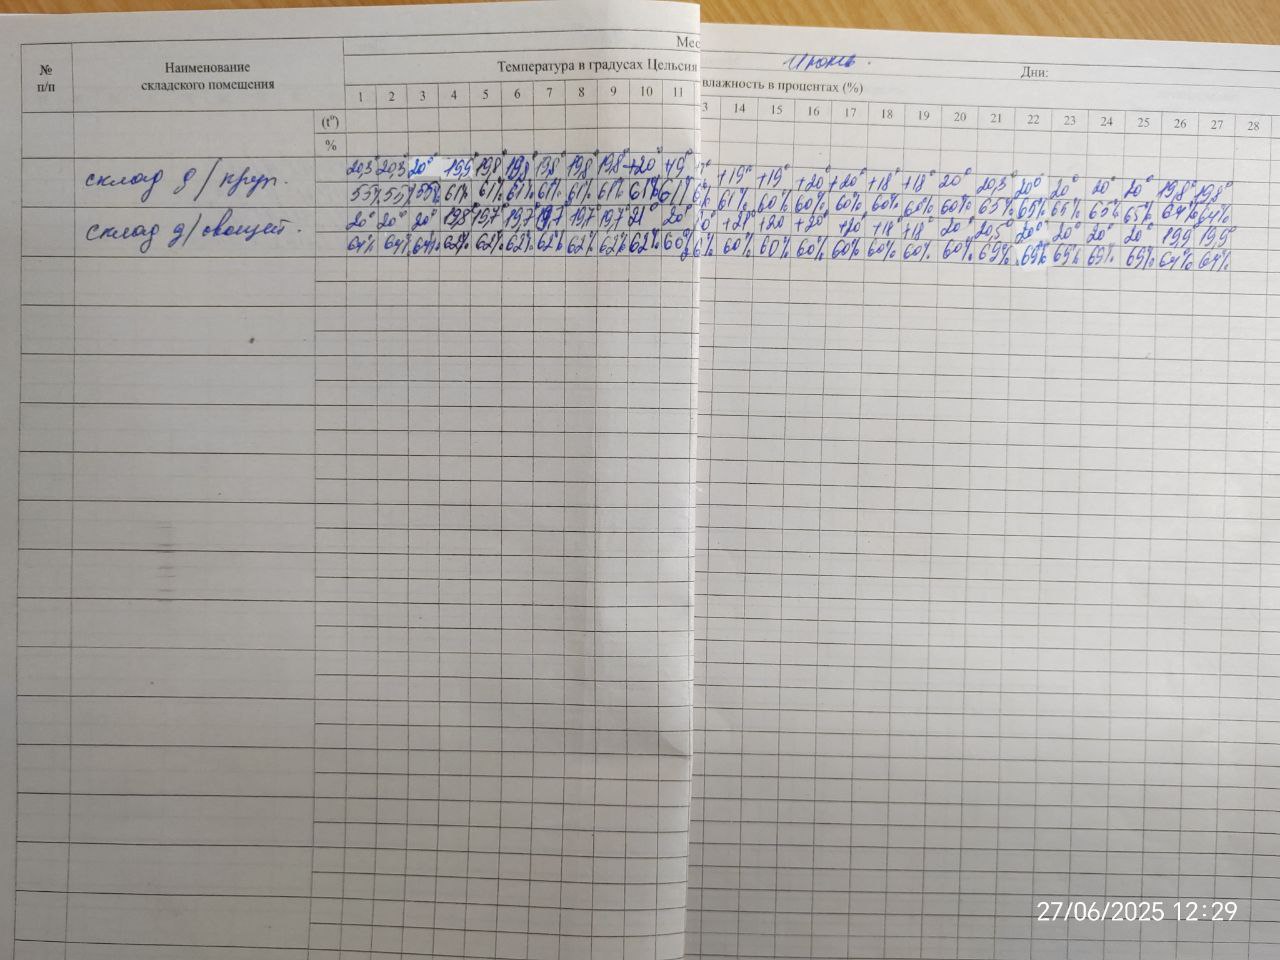 Мес
Июнь.
Дни:
№ п/п
Наименование складского помещения
Температура в градусах Цельсия
влажность в процентах (%)
1 2 3 4 5 6 7 8 9 10 11 3 14 15 16 17 18 19 20 21 22 23 24 25 26 27 28
(t°)
%
склад д/круп.
20,3° 20,3 20° 19,9 19,8° 19,8 19,8° 19,8° 19,8° +20° +19° +19° +19° +20° +20° +18° +18° 20° 20,3° 20° 20° 20° 20° 19,8° 19,8°
55% 55% 55% 61% 61% 61% 61% 61% 61% 61% 61% 61% 60% 60% 60% 60% 60% 60% 65% 65% 65% 65% 65% 64% 64%
склад д/овощей.
20° 20° 20° 19,8° 19,7° 19,7° 19,7 19,7° 19,7° 21° 20° +20 +20° +20 +18 +18° 20° 20,5° 20° 20° 20° 20° 19,9° 19,9°
64% 64% 64% 62% 62% 62% 62% 62% 62% 62% 60% 60% 60% 60% 60% 60% 60% 60% 69% 69% 69% 69% 69% 64% 64%
27/06/2025 12:29